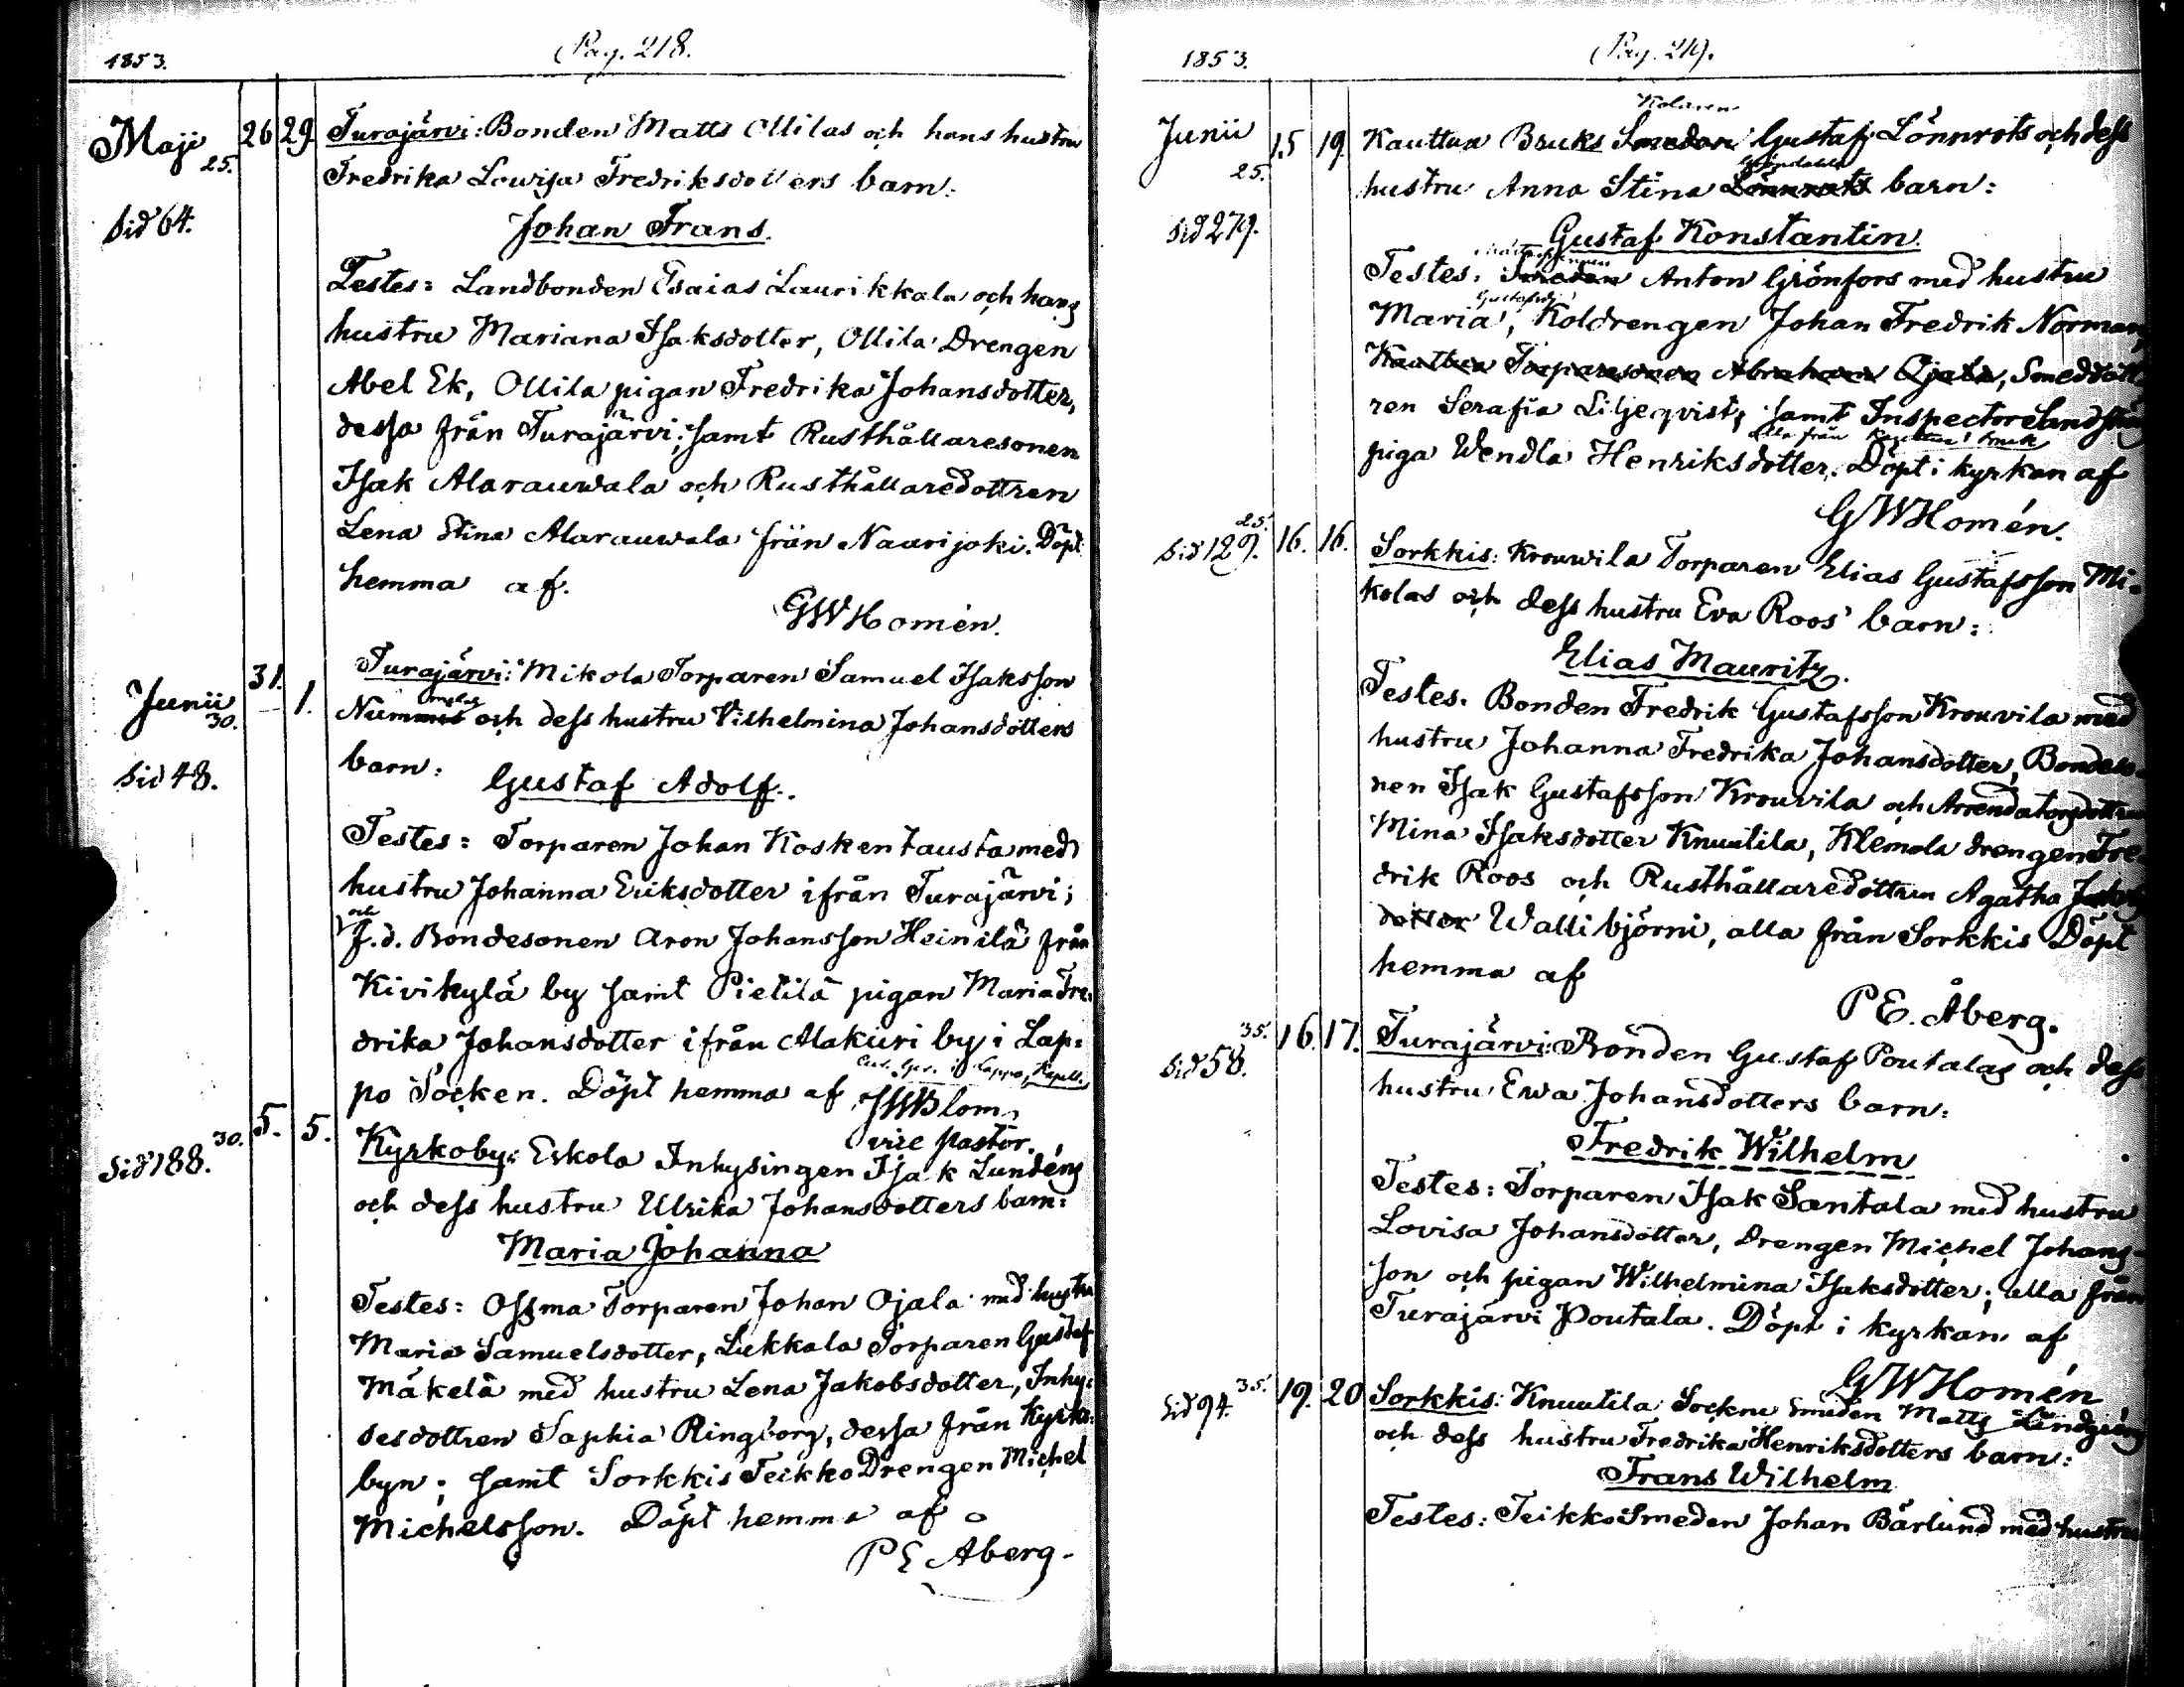 1853.
Pag. 218.
Maji 26 29 Turajärvi: Bonden Matts Ollilas och hans hustru
25.
Fredrika Lowisa Fredriksdotters barn:
Sid 64.
Johan Frans.
Testes: Landbonden Esaias Laurikkala och hans
hustru Mariana Isaksdotter, Ollila Drengen
Abel Ek, Ollila pigan Fredrika Johansdotter,
dessa från Turajärvi; samt Rusthållaresonen
Isak Alarauwala och Rusthållaredottren
Lena Stina Alarauwala från Naarijoki. Döpt
hemma af.
GW Homén.
Junii 31. 1. Turajärvi: Mikola Torparen Samuel Isaksson
30.
och dess hustru Vilhelmina Johansdotters
Sid 48.
barn:
Gustaf Adolf.
Testes: Torparen Johan Koskentausta med
hustru Johanna Eriksdotter ifrån Turajärvi;
och
f.d. Bondesonen Aron Johansson Heinilä från
Kivikylä by samt Pietilä pigan Maria Fre-
drika Johansdotter ifrån Alakiuri by i Lap-
po Socken. Döpt hemma af JW Blom
vice pastor.
Sid 188. 30. 5. 5. Kyrkoby: Eskola Inhysingen Isak Lundéns
och dess hustru Ulrika Johansdotters barn:
Maria Johanna
Testes: Ossma Torparen Johan Ojala med hustru
Maria Samuelsdotter, Lukkala Torparen Gustaf
Mäkelä med hustru Lena Jakobsdotter, Inhy-
sesdottren Saphia Ringborg, dessa från Kyrko-
byn; samt Sorkkis Teikko Drengen Michel
Michelsson. Döpt hemma af
P E Åberg.
1853.
Pag. 219.
Kolaren
Junii 15 19. Kauttua Bruks Smeden Gustaf Lönnrots och dess
25.
hustru Anna Stina Lönnrots barn:
Sid 279.
Gustaf Konstantin.
Testes: Smeden Anton Grönfors med hustru
Gustafsdr
Maria, Koldrengen Johan Fredrik Norman,
Kauttua Torparesonen Abraham Ojala, Smeddött-
ren Serafia Liljeqvist, samt Inspectors
alla från Kauttua Bruk
piga Wendla Henriksdotter. Döpt i kyrkan af
GW Homén.
25.
Sid 129. 16. 16. Sorkkis: Krouwila Torparen Elias Gustafsson Mi-
kolas och dess hustru Eva Roos' barn:
Elias Mauritz.
Testes. Bonden Fredrik Gustafsson Krouvila med
hustru Johanna Fredrika Johansdotter, Bondeso-
nen Isak Gustafsson Krouvila och Arrendatorsdottren
Mina Isaksdotter Knuutila, Klemola drengen Fre-
drik Roos och Rusthållaredottren Agatha
dotter Wallibjörni, alla från Sorkkis Döpt
hemma af
P E. Åberg.
35.
Sid 58. 16. 17. Turajärvi: Bonden Gustaf Poutalas och dess
hustru Ewa Johansdotters barn:
Fredrik Wilhelm
Testes: Torparen Isak Santala med hustru
Lovisa Johansdotter, Drengen Michel Johans-
son och pigan Wilhelmina Isaksdotter; alla från
Turajärvi Poutala. Döpt i kyrkan af
GW Homén
35.
Sid 94. 19. 20 Sorkkis: Knuutila Sockne smeden Matts
och dess hustru Fredrika Henriksdotters barn:
Frans Wilhelm
Testes: Teikko Smeden Johan Bärlund med hustru